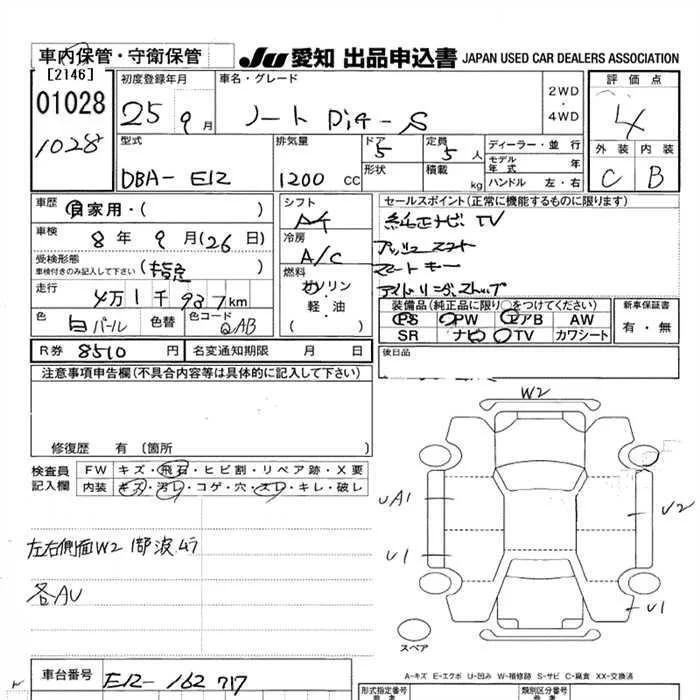 車内保管・守衛保管
JU 愛知 出品申込書 JAPAN USED CAR DEALERS ASSOCIATION
[2146]
01028
1028
初度登録年月
25 9月
車名・グレード
ノート DiG-S
2WD
・
4WD
評価点
4
外装 内装
C B
型式
DBA- E12
排気量
1200 cc
ドア
5
形状
定員
5 人
積載
kg
ディーラー・並行
モデル年式 年
ハンドル 左・右
車歴
自家用・( )
車検
8年 9月(26日)
受検形態
車検付きのみ記入して下さい (指定 )
走行
4万1千937km
色
白パール
色替
色コード
QAB
シフト
AT
冷房
A/C
燃料
ガソリン
・
軽・油
( )
セールスポイント(正常に機能するものに限ります)
純正ナビ TV
プッシュスタート
スマートキー
アイドリングストップ
装備品(純正品に限り○をつけてください)
PS PW エアB AW
SR ナビ TV カワシート
新車保証書
有・無
R券 8510 円
名変通知期限 月 日
後日品
注意事項申告欄(不具合内容等は具体的に記入して下さい)
修復歴 有 〔箇所
検査員記入欄
FW キズ・飛石・ヒビ割・リペア跡・X要
内装 キズ・汚レ・コゲ・穴・スレ・キレ・破レ
左右側面W2
各AU
W2
UA1
U2
U1
U1
スペア
A-キズ E-エクボ U-凹み W-補修跡 S-サビ C-腐食 XX-交換済
車台番号
E12- 162717
形式指定番号
参考
類別区分番号
参考